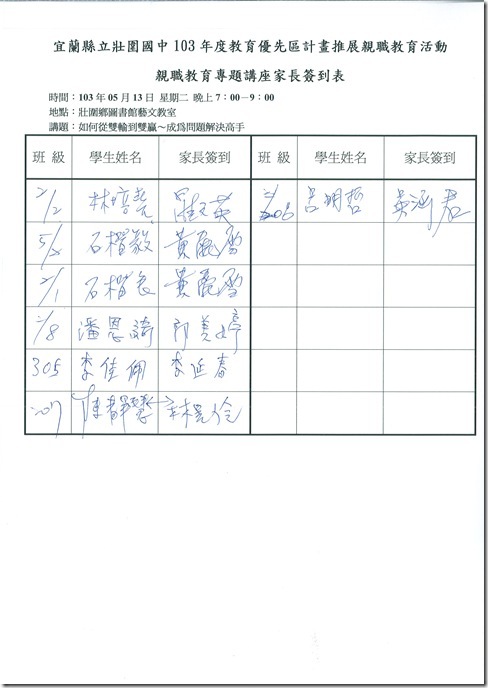 宜蘭縣立壯圍國中 103 年度教育優先區計畫推展親職教育活動
親職教育專題講座家長簽到表
時間：103 年 05 月 13 日 星期二 晚上 7：00－9：00
地點：壯圍鄉圖書館藝文教室
講題：如何從雙輸到雙贏～成為問題解決高手
班 級 學生姓名 家長簽到 班 級 學生姓名 家長簽到
林 英 呂明哲 吳 君
石楷毅 黃麗雪
石楷 黃麗雪
潘恩 美婷
305 李佳佩 李延春
207 陳 林